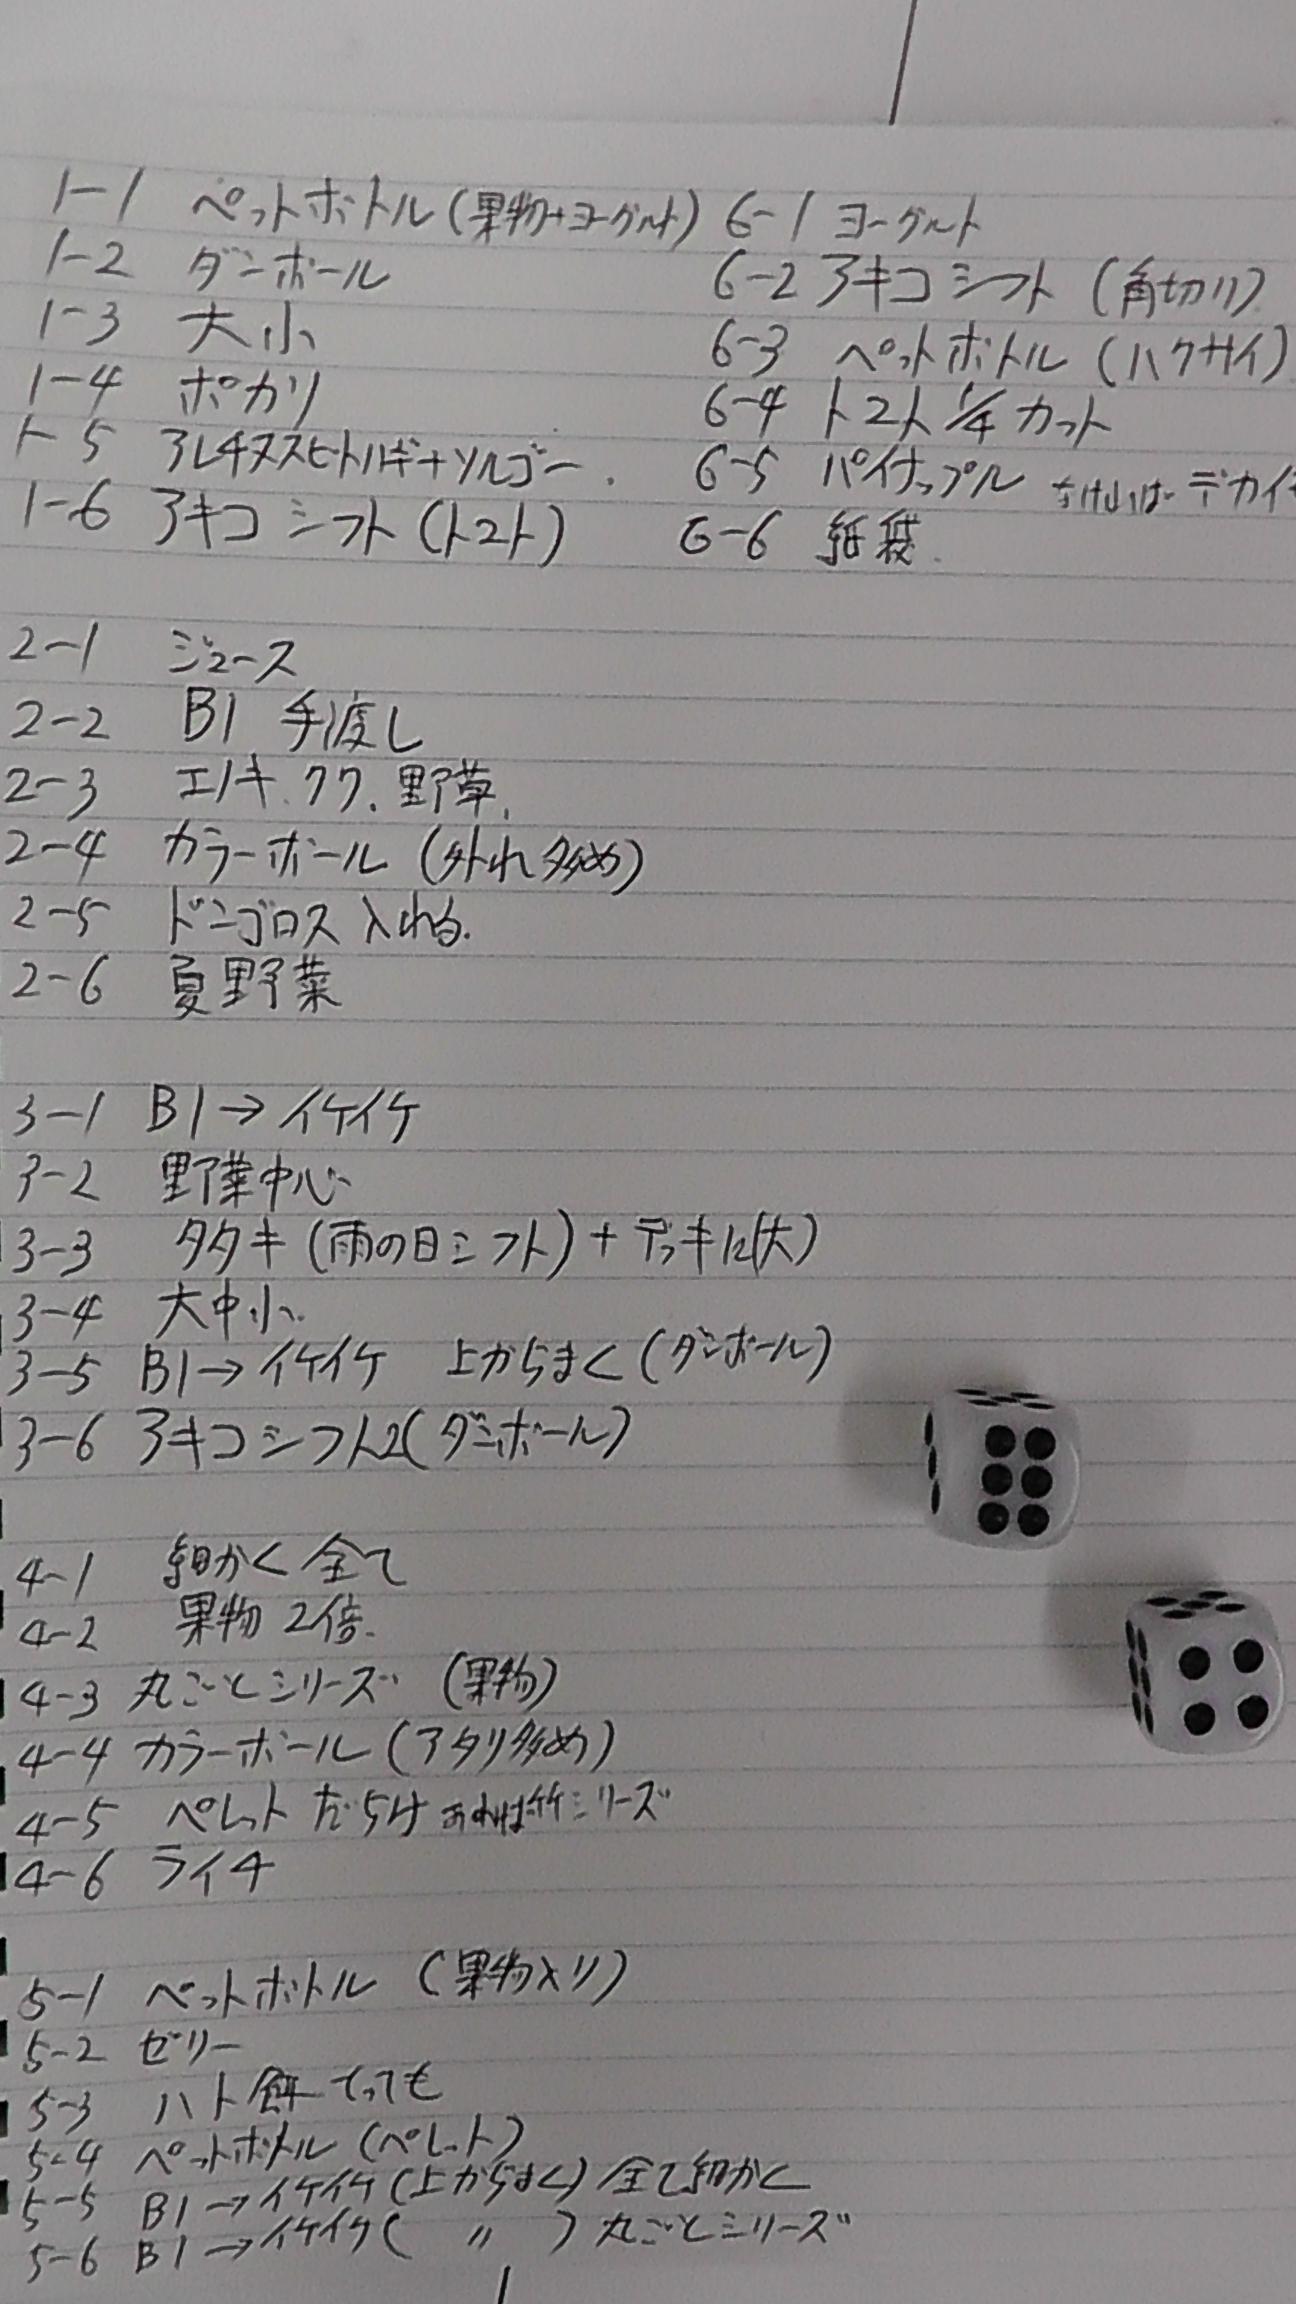 1-1 ペットボトル(果物+ヨーグルト)
1-2 ダンボール
1-3 大小
1-4 ポカリ
1-5 アレチヌスビトハギ+ソルゴー
1-6 アキコシフト(トマト)
6-1 ヨーグルト
6-2 アキコシフト(角切り)
6-3 ペットボトル(ハクサイ)
6-4 トマト 1/4 カット
6-5 パイナップル なければデカイモ
6-6 紙袋
2-1 ジュース
2-2 B1 手渡し
2-3 エノキ、クワ、野草
2-4 カラーボール(外れ多め)
2-5 ドンゴロス入れる
2-6 夏野菜
3-1 B1→イケイケ
3-2 野菜中心
3-3 タタキ(雨の日シフト)+デッキに(大)
3-4 大中小
3-5 B1→イケイケ 上からまく(ダンボール)
3-6 アキコシフト2(ダンボール)
4-1 細かく全て
4-2 果物 2倍
4-3 丸ごとシリーズ(果物)
4-4 カラーボール(アタリ多め)
4-5 ペレットだらけ あれば竹シリーズ
4-6 ライチ
5-1 ペットボトル(果物入り)
5-2 ゼリー
5-3 ハト餌とっても
5-4 ペットボトル(ペレット)
5-5 B1→イケイケ(上からまく)全て細かく
5-6 B1→イケイケ( 〃 )丸ごとシリーズ